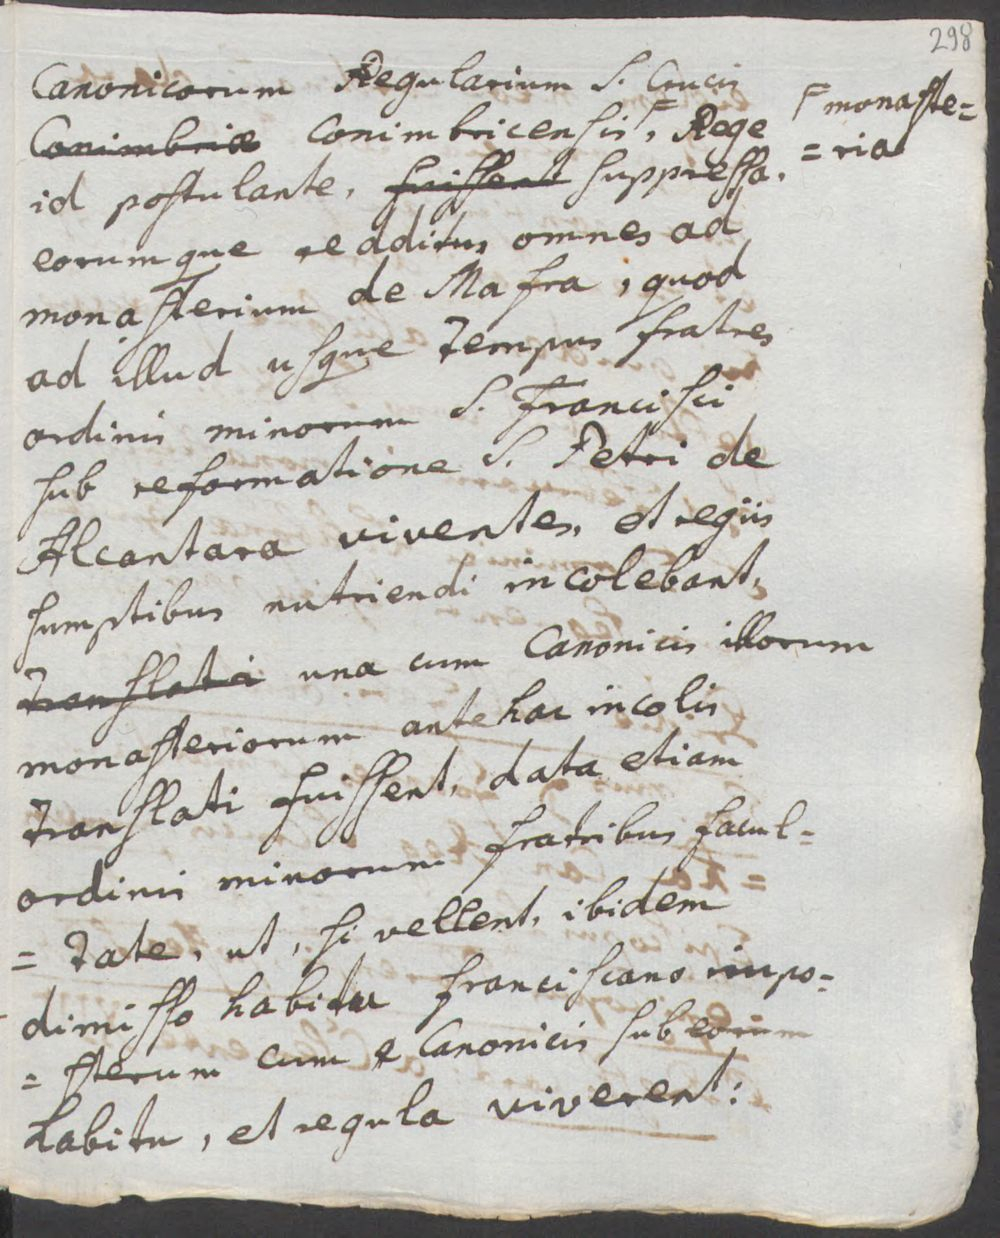 298
Canonicorum Regularium S. Crucis
Conimbriae Conimbricensis, Rege
monaste=
=ria
id postulante, fuissent suppressa,
eorumque redditus omnes ad
monasterium de Mafra, quod
ad illud usque tempus fratres
ordinis minorum S. Francisci
sub reformatione S. Petri de
Alcantara viventes, et regiis
sumptibus nutriendi incolebant,
translati una cum Canonicis illorum
monasteriorum antehac incolis
translati fuissent, data etiam
ordinis minorum fratribus facul=
=tate, ut, si vellent, ibidem
dimisso habitu franciscano impo=
=sterum cum Canonicis sub eorum
habitu, et regula viverent: